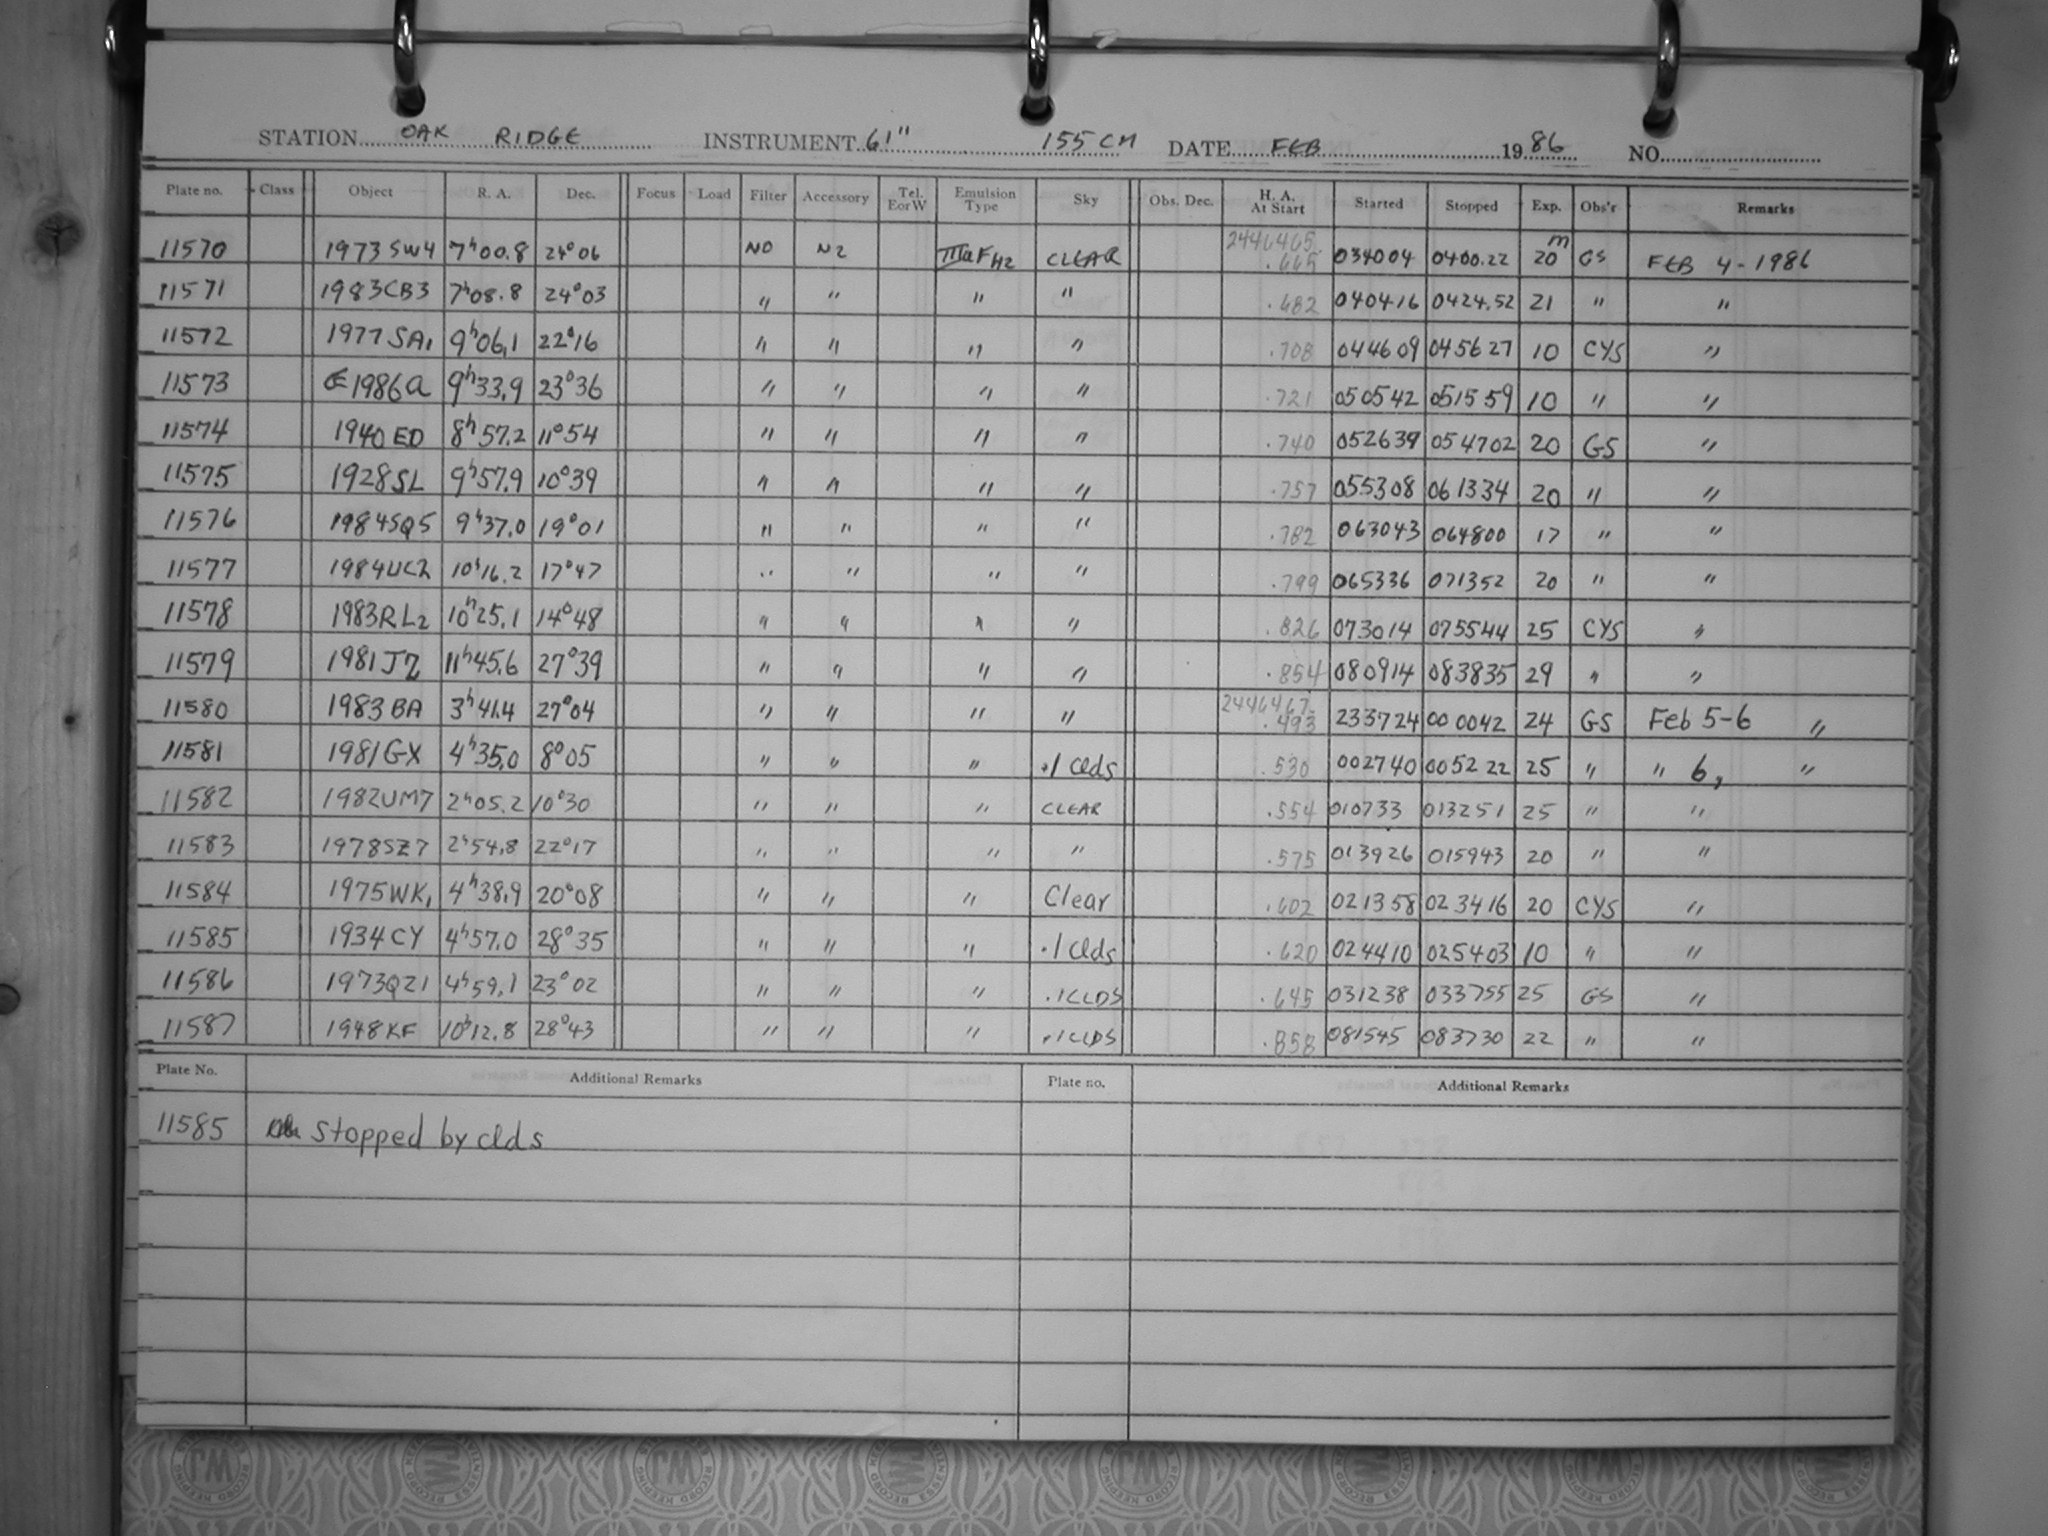 STATION OAK RIDGE INSTRUMENT 61" 155 CM DATE FEB 1986 NO.
Plate no. Class Object R. A. Dec. Focus Load Filter Accessory Tel. E or W Emulsion Type Sky Obs. Dec. H. A. At Start Started Stopped Exp. Obs'r Remarks
11570 1973SW4 7h00.8 24°06 NO N2 IIIaF H2 CLEAR 2446465. .665 034004 0400.22 20m GS FEB 4-1986
11571 1983CB3 7h08.8 24°03 " " " " .682 040416 0424.52 21 " "
11572 1977SA1 9h06.1 22°16 " " " " .708 044609 045627 10 CYS "
11573 1986a 9h33.9 23°36 " " " " .721 050542 051559 10 " "
11574 1940ED 8h57.2 11°54 " " " " .740 052639 054702 20 GS "
11575 1928SL 9h57.9 10°39 " " " " .757 055308 061334 20 " "
11576 1984SQ5 9h37.0 19°01 " " " " .782 063043 064800 17 " "
11577 1984UC2 10h16.2 17°47 " " " " .799 065336 071352 20 " "
11578 1983RL2 10h25.1 14°48 " " " " .826 073014 075544 25 CYS "
11579 1981JZ 11h45.6 27°39 " " " " .854 080914 083835 29 " "
11580 1983BA 3h41.4 27°04 " " " " 2446467. .493 233724 000042 24 GS Feb 5-6 "
11581 1981GX 4h35.0 8°05 " " " .1 clds .530 002740 005222 25 " " 6, "
11582 1982UM7 2h05.2 10°30 " " " CLEAR .554 010733 013251 25 " "
11583 1978SZ7 2h54.8 22°17 " " " " .575 013926 015943 20 " "
11584 1975WK1 4h38.9 20°08 " " " Clear .602 021358 023416 20 CYS "
11585 1934CY 4h57.0 28°35 " " " .1 clds .620 024410 025403 10 " "
11586 1973QZ1 4h59.1 23°02 " " " .1CLDS .645 031238 033755 25 GS "
11587 1948KF 10h12.8 28°43 " " " .1CLDS .858 081545 083730 22 " "
Plate No. Additional Remarks Plate no. Additional Remarks
11585 stopped by clds